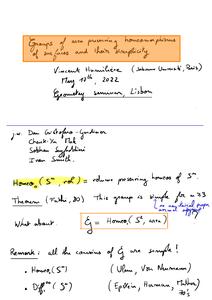 Groups of area preserving homeomorphisms
of surfaces and their simplicity
Vincent Humilière (Sorbonne Université, Paris)
May 17th, 2022
Geometry seminar, Lisbon
j.w. Dan Cristofaro-Gardiner
Cheuk-Yu Mak
Sobhan Seyfaddini
Ivan Smith.
Homeo₀ (Sⁿ, vol) = volume preserving homeos of Sⁿ.
Theorem (Fathi, 80) This group is simple for n ≥ 3
(no non trivial proper
normal subgroup)
What about G = Homeo₀ (S², area)
Remark: all the cousins of G are simple!
• Homeo₀ (Sⁿ) (Ulam, Von Neumann)
• Diff₀^∞ (Sⁿ) (Epstein, Herman, Mather)
70's